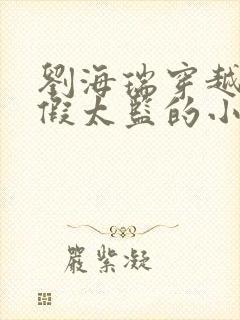 劉海瑞穿越
假太監的小
嚴紫凝